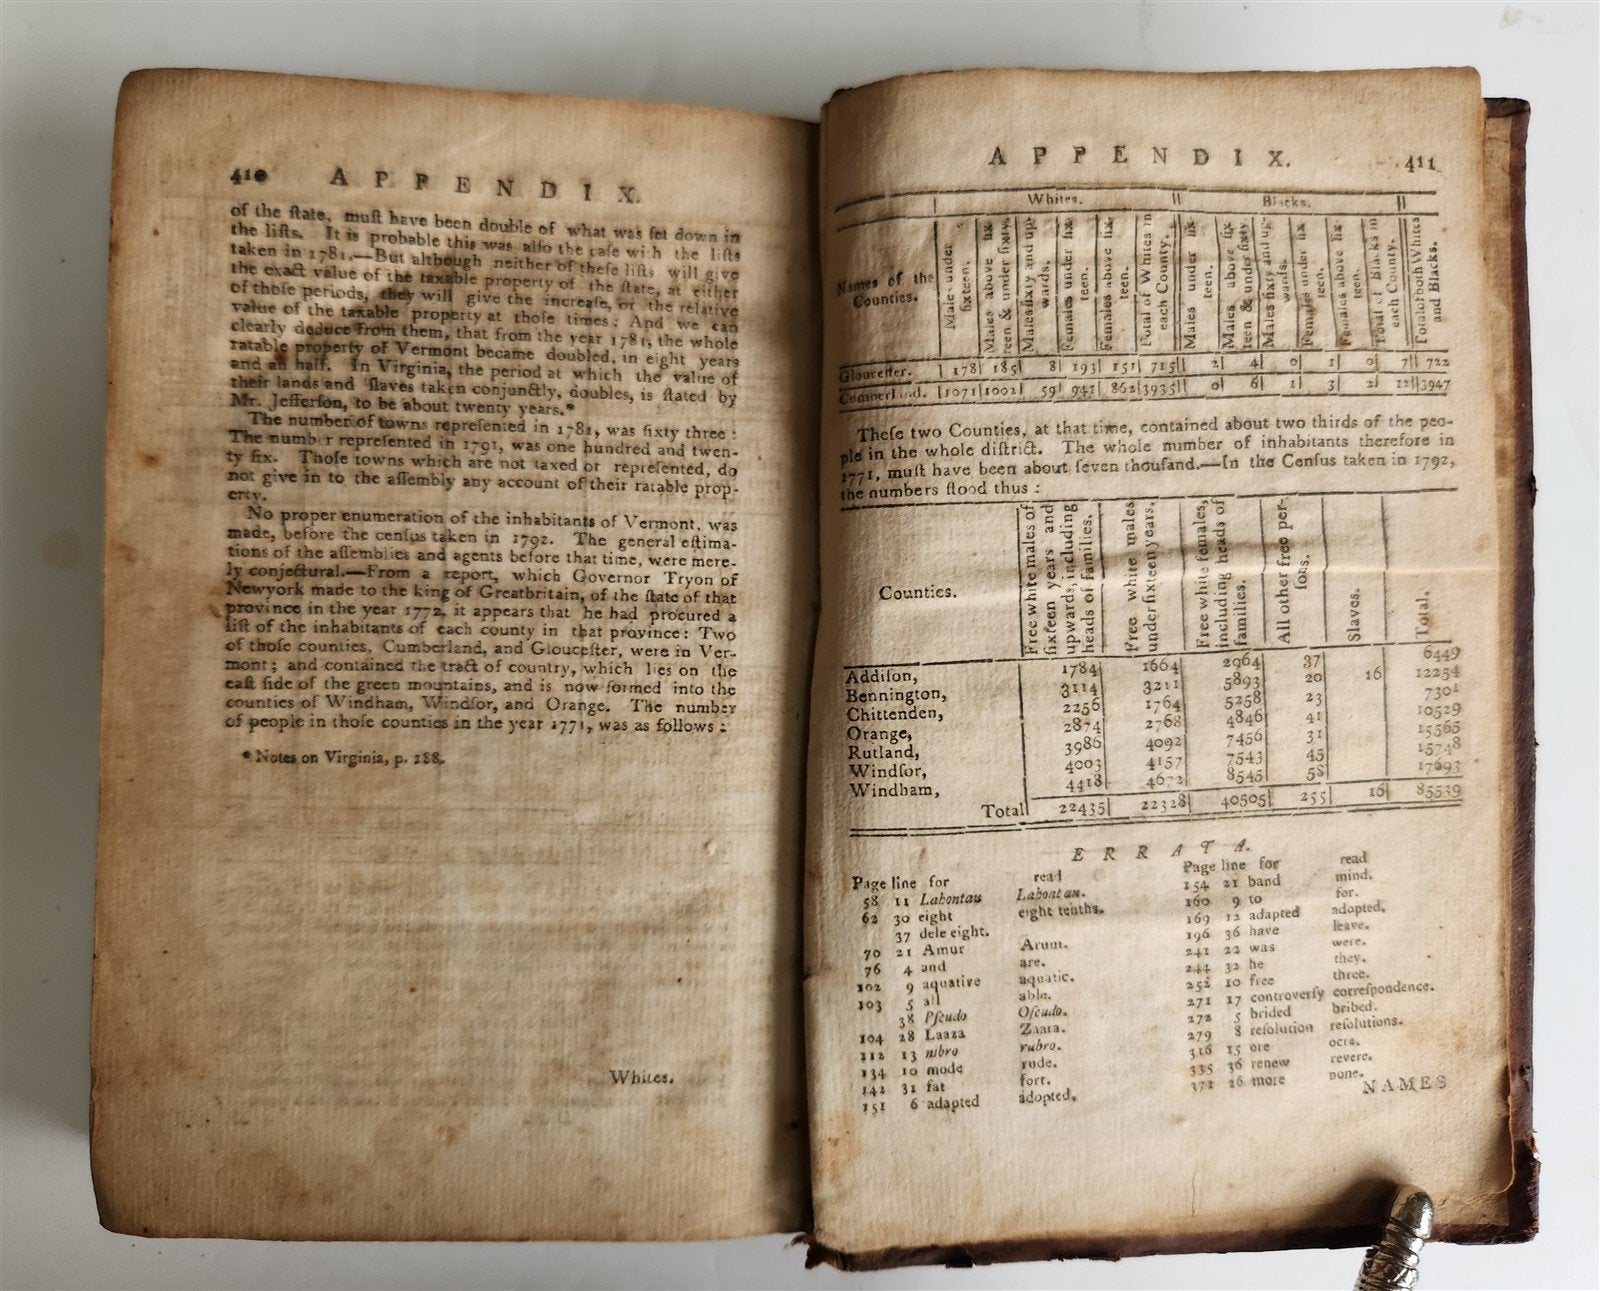 410 A P P E N D I X.
of the ſtate, muſt have been double of what was ſet down in
the liſts. It is probable this was alſo the caſe with the liſts
taken in 1781.—But although neither of theſe liſts will give
the exact value of the taxable property of the ſtate, at either
of thoſe periods, they will give the increaſe, or the relative
value of the taxable property at thoſe times: And we can
clearly deduce from them, that from the year 1781, the whole
ratable property of Vermont became doubled, in eight years
and an half. In Virginia, the period at which the value of
their lands and ſlaves taken conjunctly, doubles, is ſtated by
Mr. Jefferſon, to be about twenty years.*
The number of towns repreſented in 1781, was ſixty three:
The number repreſented in 1791, was one hundred and twen-
ty ſix. Thoſe towns which are not taxed or repreſented, do
not give in to the aſſembly any account of their ratable prop-
erty.
No proper enumeration of the inhabitants of Vermont, was
made, before the cenſus taken in 1792. The general eſtima-
tions of the aſſemblies and agents before that time, were mere-
ly conjectural.—From a report, which Governor Tryon of
Newyork made to the king of Greatbritain, of the ſtate of that
province in the year 1772, it appears that he had procured a
liſt of the inhabitants of each county in that province: Two
of thoſe counties, Cumberland, and Glouceſter, were in Ver-
mont; and contained the tract of country, which lies on the
eaſt ſide of the green mountains, and is now formed into the
counties of Windham, Windſor, and Orange. The number
of people in thoſe counties in the year 1771, was as follows:
* Notes on Virginia, p. 288.
Whites.
A P P E N D I X. 411
Whites. Blacks.
Names of the
Counties.
Males under
ſixteen.
Males above ſix-
teen & under ſixty.
Males ſixty and up-
wards.
Females under ſix-
teen.
Females above ſix-
teen.
Total of Whites in
each County.
Males under ſix-
teen.
Males above ſix-
teen & under ſixty
Males ſixty and up-
wards.
Females under ſix-
teen.
Females above ſix-
teen.
Total of Blacks in
each County.
Total of both Whites
and Blacks.
Glouceſter. 178 185 8 193 151 715 2 4 0 1 0 7 722
Cumberland. 1071 1002 59 941 862 3935 0 6 1 3 2 12 3947
Theſe two Counties, at that time, contained about two thirds of the peo-
ple in the whole diſtrict. The whole number of inhabitants therefore in
1771, muſt have been about ſeven thouſand.—In the Cenſus taken in 1792,
the numbers ſtood thus:
Counties.
Free white males of
ſixteen years and
upwards, including
heads of families.
Free white males
under ſixteen years.
Free white females,
including heads of
families.
All other free per-
ſons.
Slaves.
Total.
Addiſon, 1784 1664 2964 37 6449
Bennington, 3114 3211 5893 20 16 12254
Chittenden, 2256 1764 5258 23 7301
Orange, 2874 2768 4846 41 10529
Rutland, 3986 4092 7456 31 15565
Windſor, 4003 4157 7543 45 15748
Windham, 4418 4672 8545 58 17693
Total 22435 22328 40505 255 16 85539
E R R A T A.
Page line for read
58 11 Lahontau Lahontan.
62 30 eight eight tenths.
37 dele eight.
70 21 Amur Arum.
76 4 and are.
102 9 aquative aquatic.
103 5 all able.
38 Pſeudo Oſeudo.
104 28 Laaza Zaara.
112 13 nibro rubro.
134 10 mode rude.
142 31 fat fort.
151 6 adapted adopted.
Page line for read
154 21 band mind.
160 9 to for.
169 12 adapted adopted.
196 36 have leave.
241 22 was were.
244 32 he they.
252 10 free three.
271 17 controverſy correſpondence.
272 5 brided bribed.
279 8 reſolution reſolutions.
316 15 ore ocra.
335 36 renew revere.
372 26 more none.
NAMES